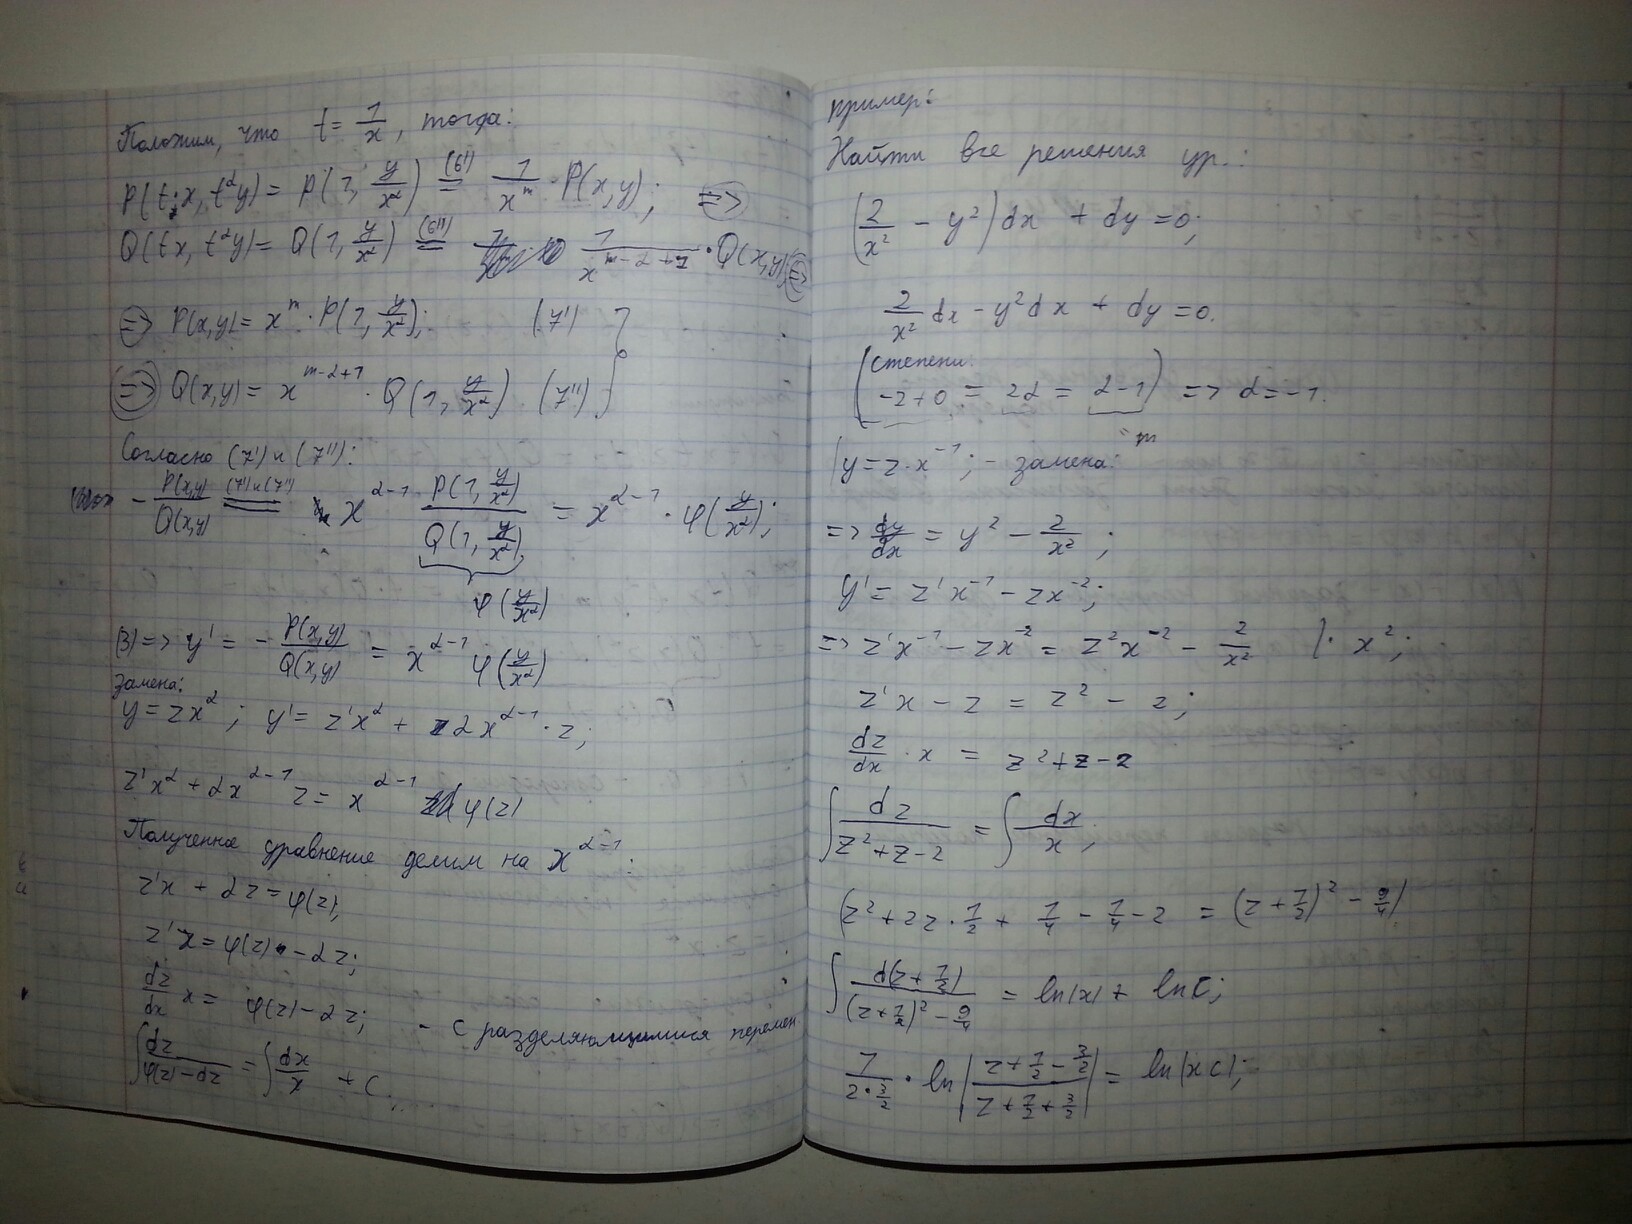 Положим, что t = 1/x, тогда:
P(t·x, t^α y) = P(1, y/x^α) (6')= 1/x^m · P(x,y); =>
Q(tx, t^α y) = Q(1, y/x^α) (6'')= 1/x^(m-α+1) · Q(x,y); =>
=> P(x,y) = x^m · P(1, y/x^α); (7')
=> Q(x,y) = x^(m-α+1) · Q(1, y/x^α) (7'')
Согласно (7') и (7''):
- P(x,y)/Q(x,y) (7') и (7'')= x^(α-1) · P(1, y/x^α)/Q(1, y/x^α) = x^(α-1) · φ(y/x^α);
φ(y/x^α)
(3) => y' = - P(x,y)/Q(x,y) = x^(α-1) φ(y/x^α)
Замена:
y = zx^α; y' = z'x^α + αx^(α-1) · z;
z'x^α + αx^(α-1) z = x^(α-1) φ(z)
Полученное уравнение делим на x^(α-1):
z'x + αz = φ(z);
z'x = φ(z) - αz;
dz/dx x = φ(z) - αz; - с разделяющимися перемен.
∫ dz/(φ(z) - αz) = ∫ dx/x + C.
Пример:
Найти все решения ур.:
(2/x² - y²)dx + dy = 0;
2/x² dx - y² dx + dy = 0.
(степени:
-2+0 = 2α = α-1) => α = -1.
"m
y = z·x^-1; - замена:
=> dy/dx = y² - 2/x²;
y' = z'x^-1 - zx^-2;
=> z'x^-1 - zx^-2 = z²x^-2 - 2/x² | · x²;
z'x - z = z² - 2;
dz/dx · x = z² + z - 2
∫ dz/(z² + z - 2) = ∫ dx/x;
(z² + 2z · 1/2 + 1/4 - 1/4 - 2 = (z + 1/2)² - 9/4)
∫ d(z + 1/2)/((z + 1/2)² - 9/4) = ln|x| + ln C;
1/(2·3/2) · ln |(z + 1/2 - 3/2)/(z + 1/2 + 3/2)| = ln|xC|;